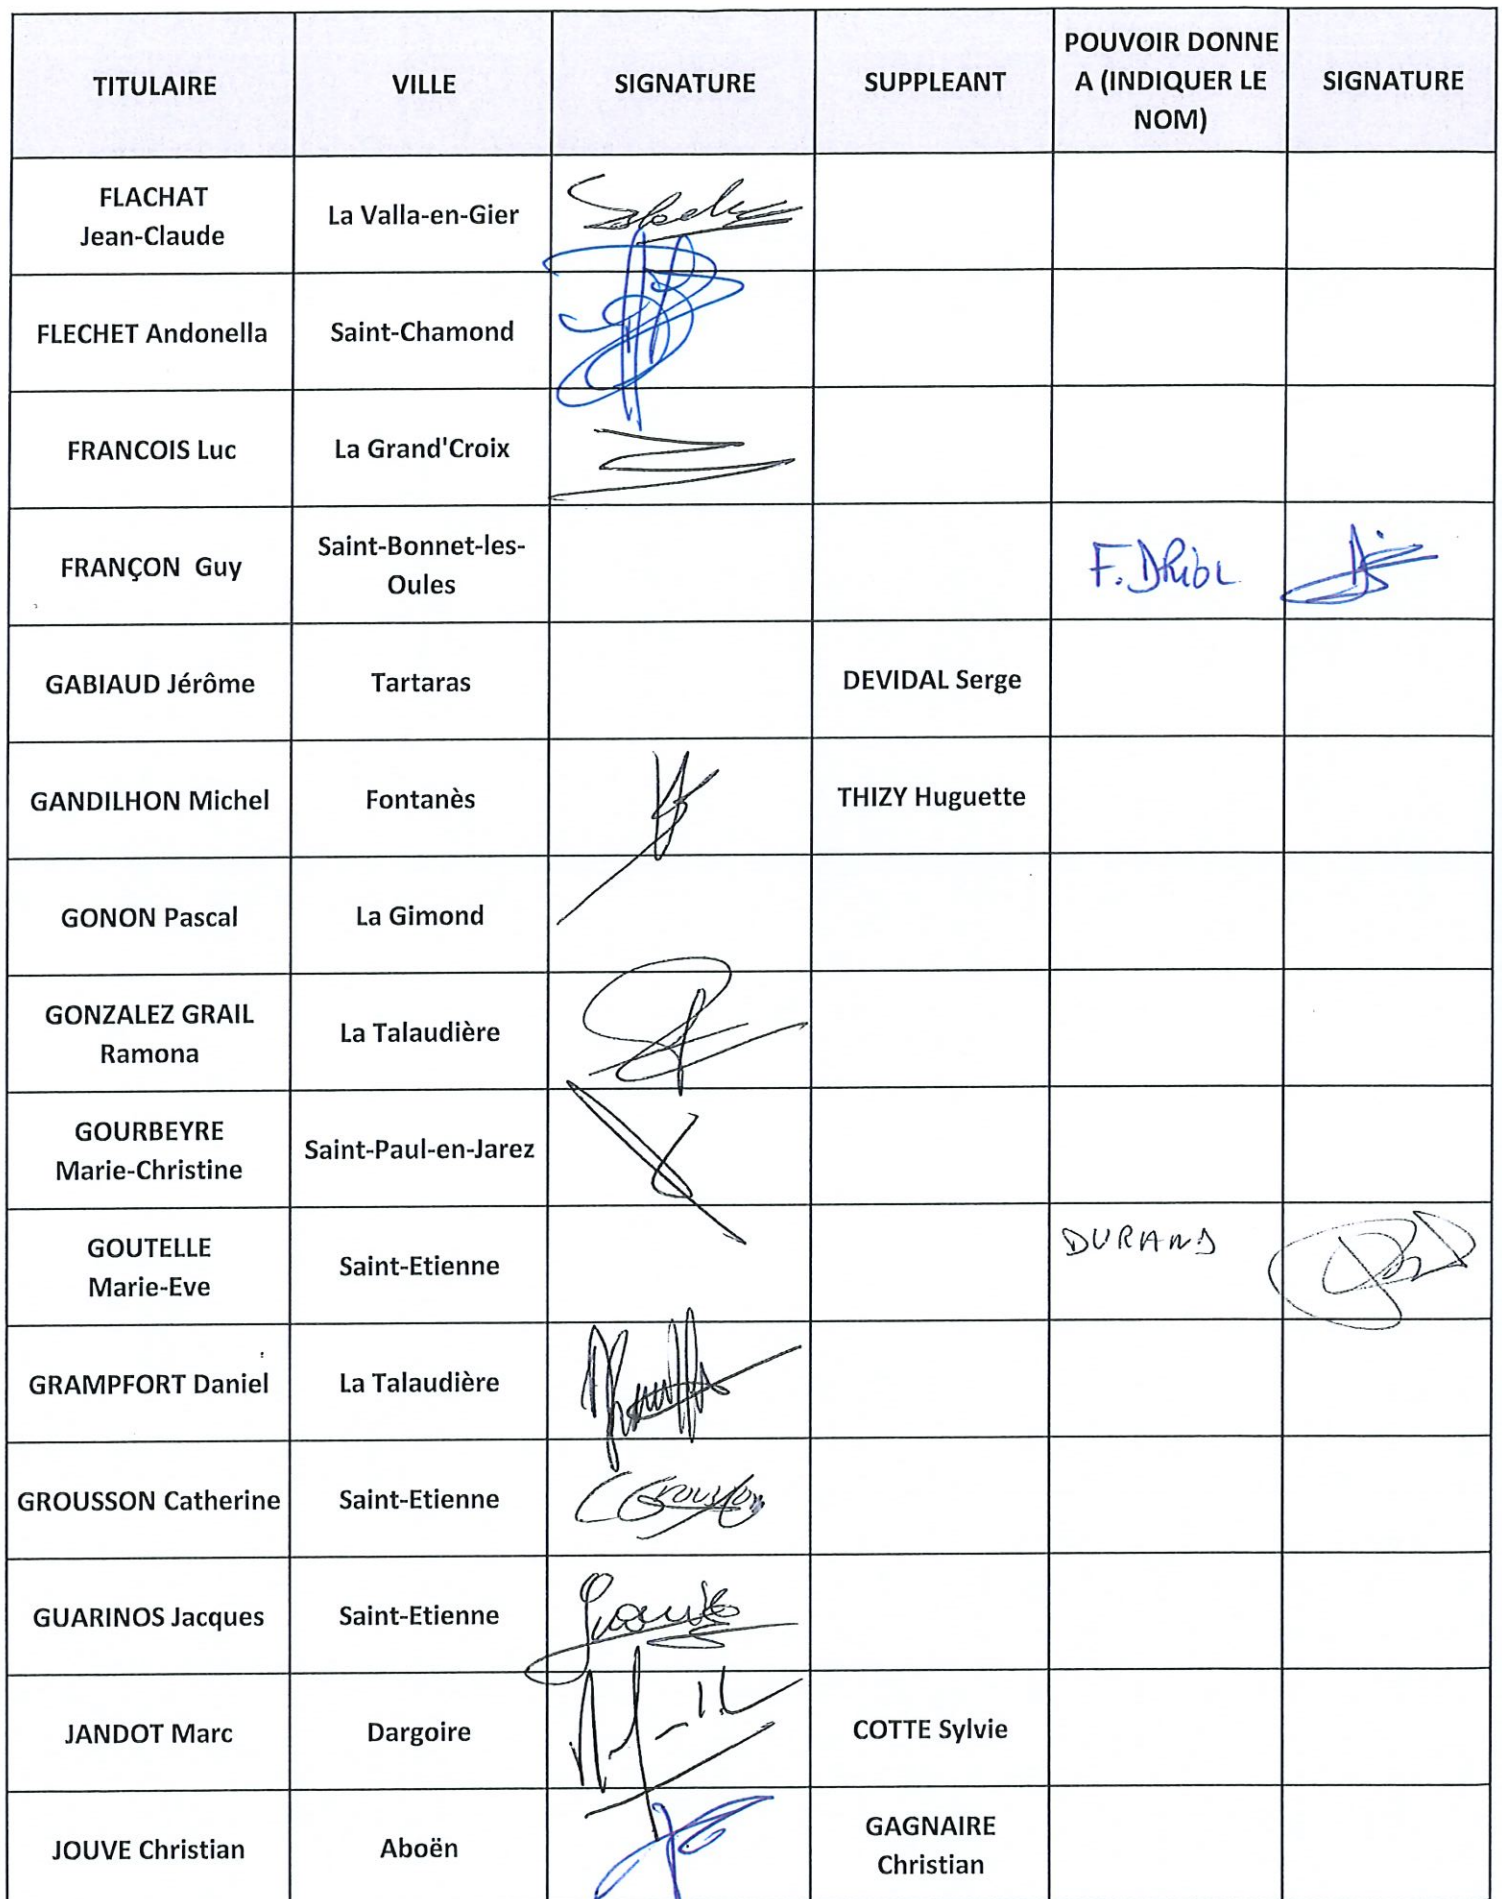 TITULAIRE
VILLE
SIGNATURE
SUPPLEANT
POUVOIR DONNE
A (INDIQUER LE
NOM)
SIGNATURE
FLACHAT
Jean-Claude
La Valla-en-Gier
FLECHET Andonella
Saint-Chamond
FRANCOIS Luc
La Grand'Croix
FRANÇON Guy
Saint-Bonnet-les-
Oules
F. DRIOL
GABIAUD Jérôme
Tartaras
DEVIDAL Serge
GANDILHON Michel
Fontanès
THIZY Huguette
GONON Pascal
La Gimond
GONZALEZ GRAIL
Ramona
La Talaudière
GOURBEYRE
Marie-Christine
Saint-Paul-en-Jarez
GOUTELLE
Marie-Eve
Saint-Etienne
DURAND
GRAMPFORT Daniel
La Talaudière
GROUSSON Catherine
Saint-Etienne
GUARINOS Jacques
Saint-Etienne
JANDOT Marc
Dargoire
COTTE Sylvie
JOUVE Christian
Aboën
GAGNAIRE
Christian